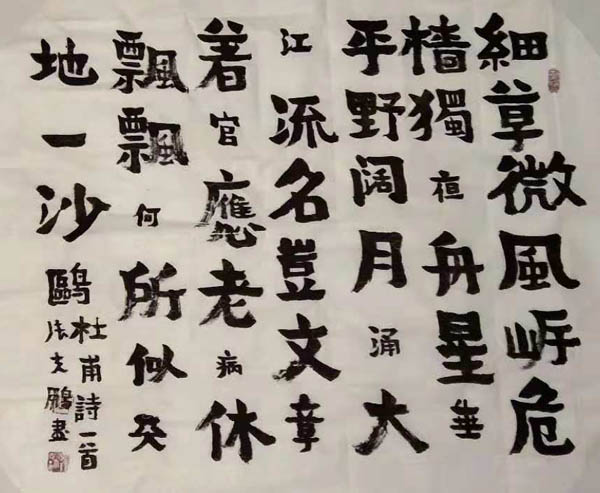 細草微風岸危
檣獨夜舟星垂
平野阔月涌大
江流名豈文章
著官應老病休
飄飄何所似天
地一沙鷗
杜甫詩一首
文鵬